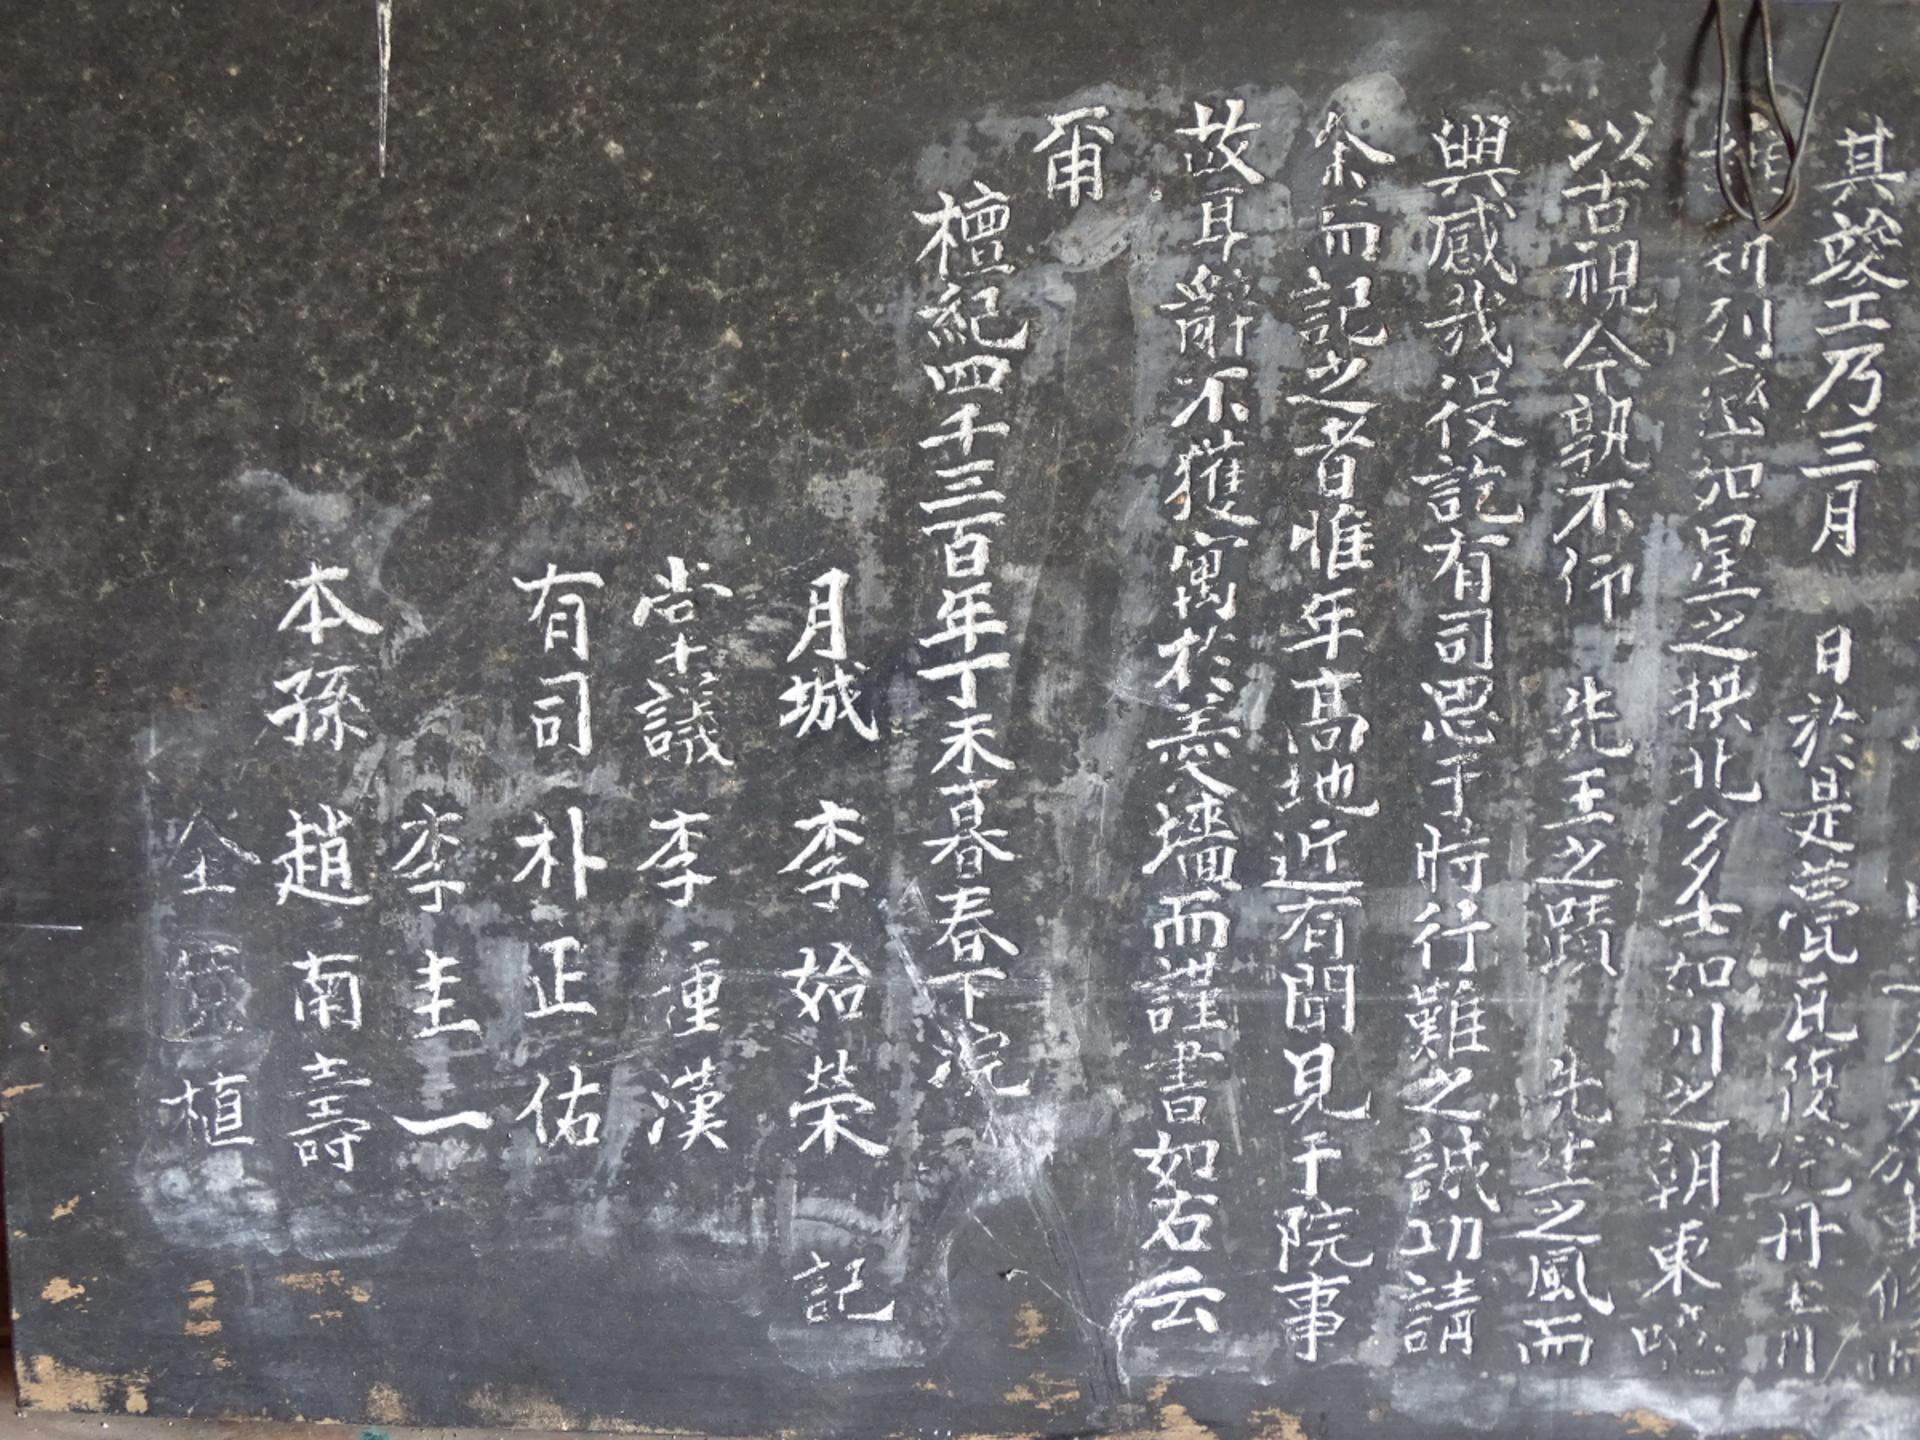 其竣工乃三月 日於是甍瓦復完丹
切列 如星之拱北多士如川之朝東
以古視今孰不仰 先王之蹟 先生之風而
興感哉役訖有司思于時行難之誠功請
余而記之者惟年高地近有聞見于院事
故耳辭不獲寓於羹墻而謹書如右云
爾
檀紀四千三百年丁未暮春下浣
月城 李始榮 記
堂議 李重漢
有司 朴正佑
李圭一
本孫 趙南壽
全 植